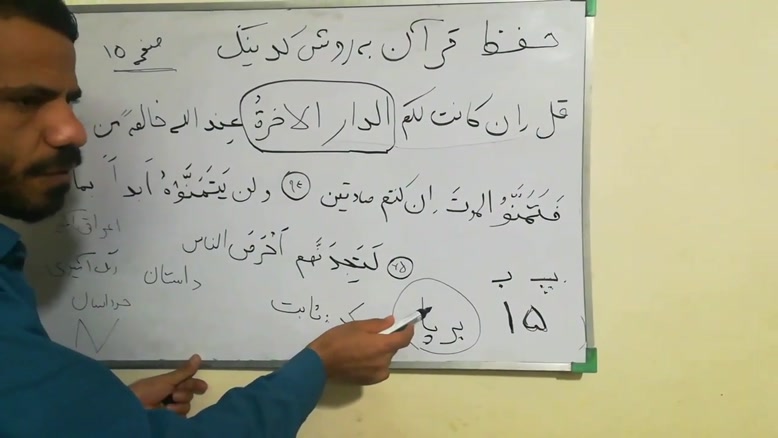 حفظ قرآن به روش کدینگ
صفحه ۱۵
قل إن کانت لکم الدار الاخرةُ عند الله خالصةً من
فَتَمَنَّوُ الموتَ إن کنتم صادقین ۹۴ ولن یَتَمَنَّوْهُ أبداً بما
۹۵ لَتَجِدَنَّهم أحْرَصَ الناس
ب
۱۵
برپا
کد: ثابت
داستان